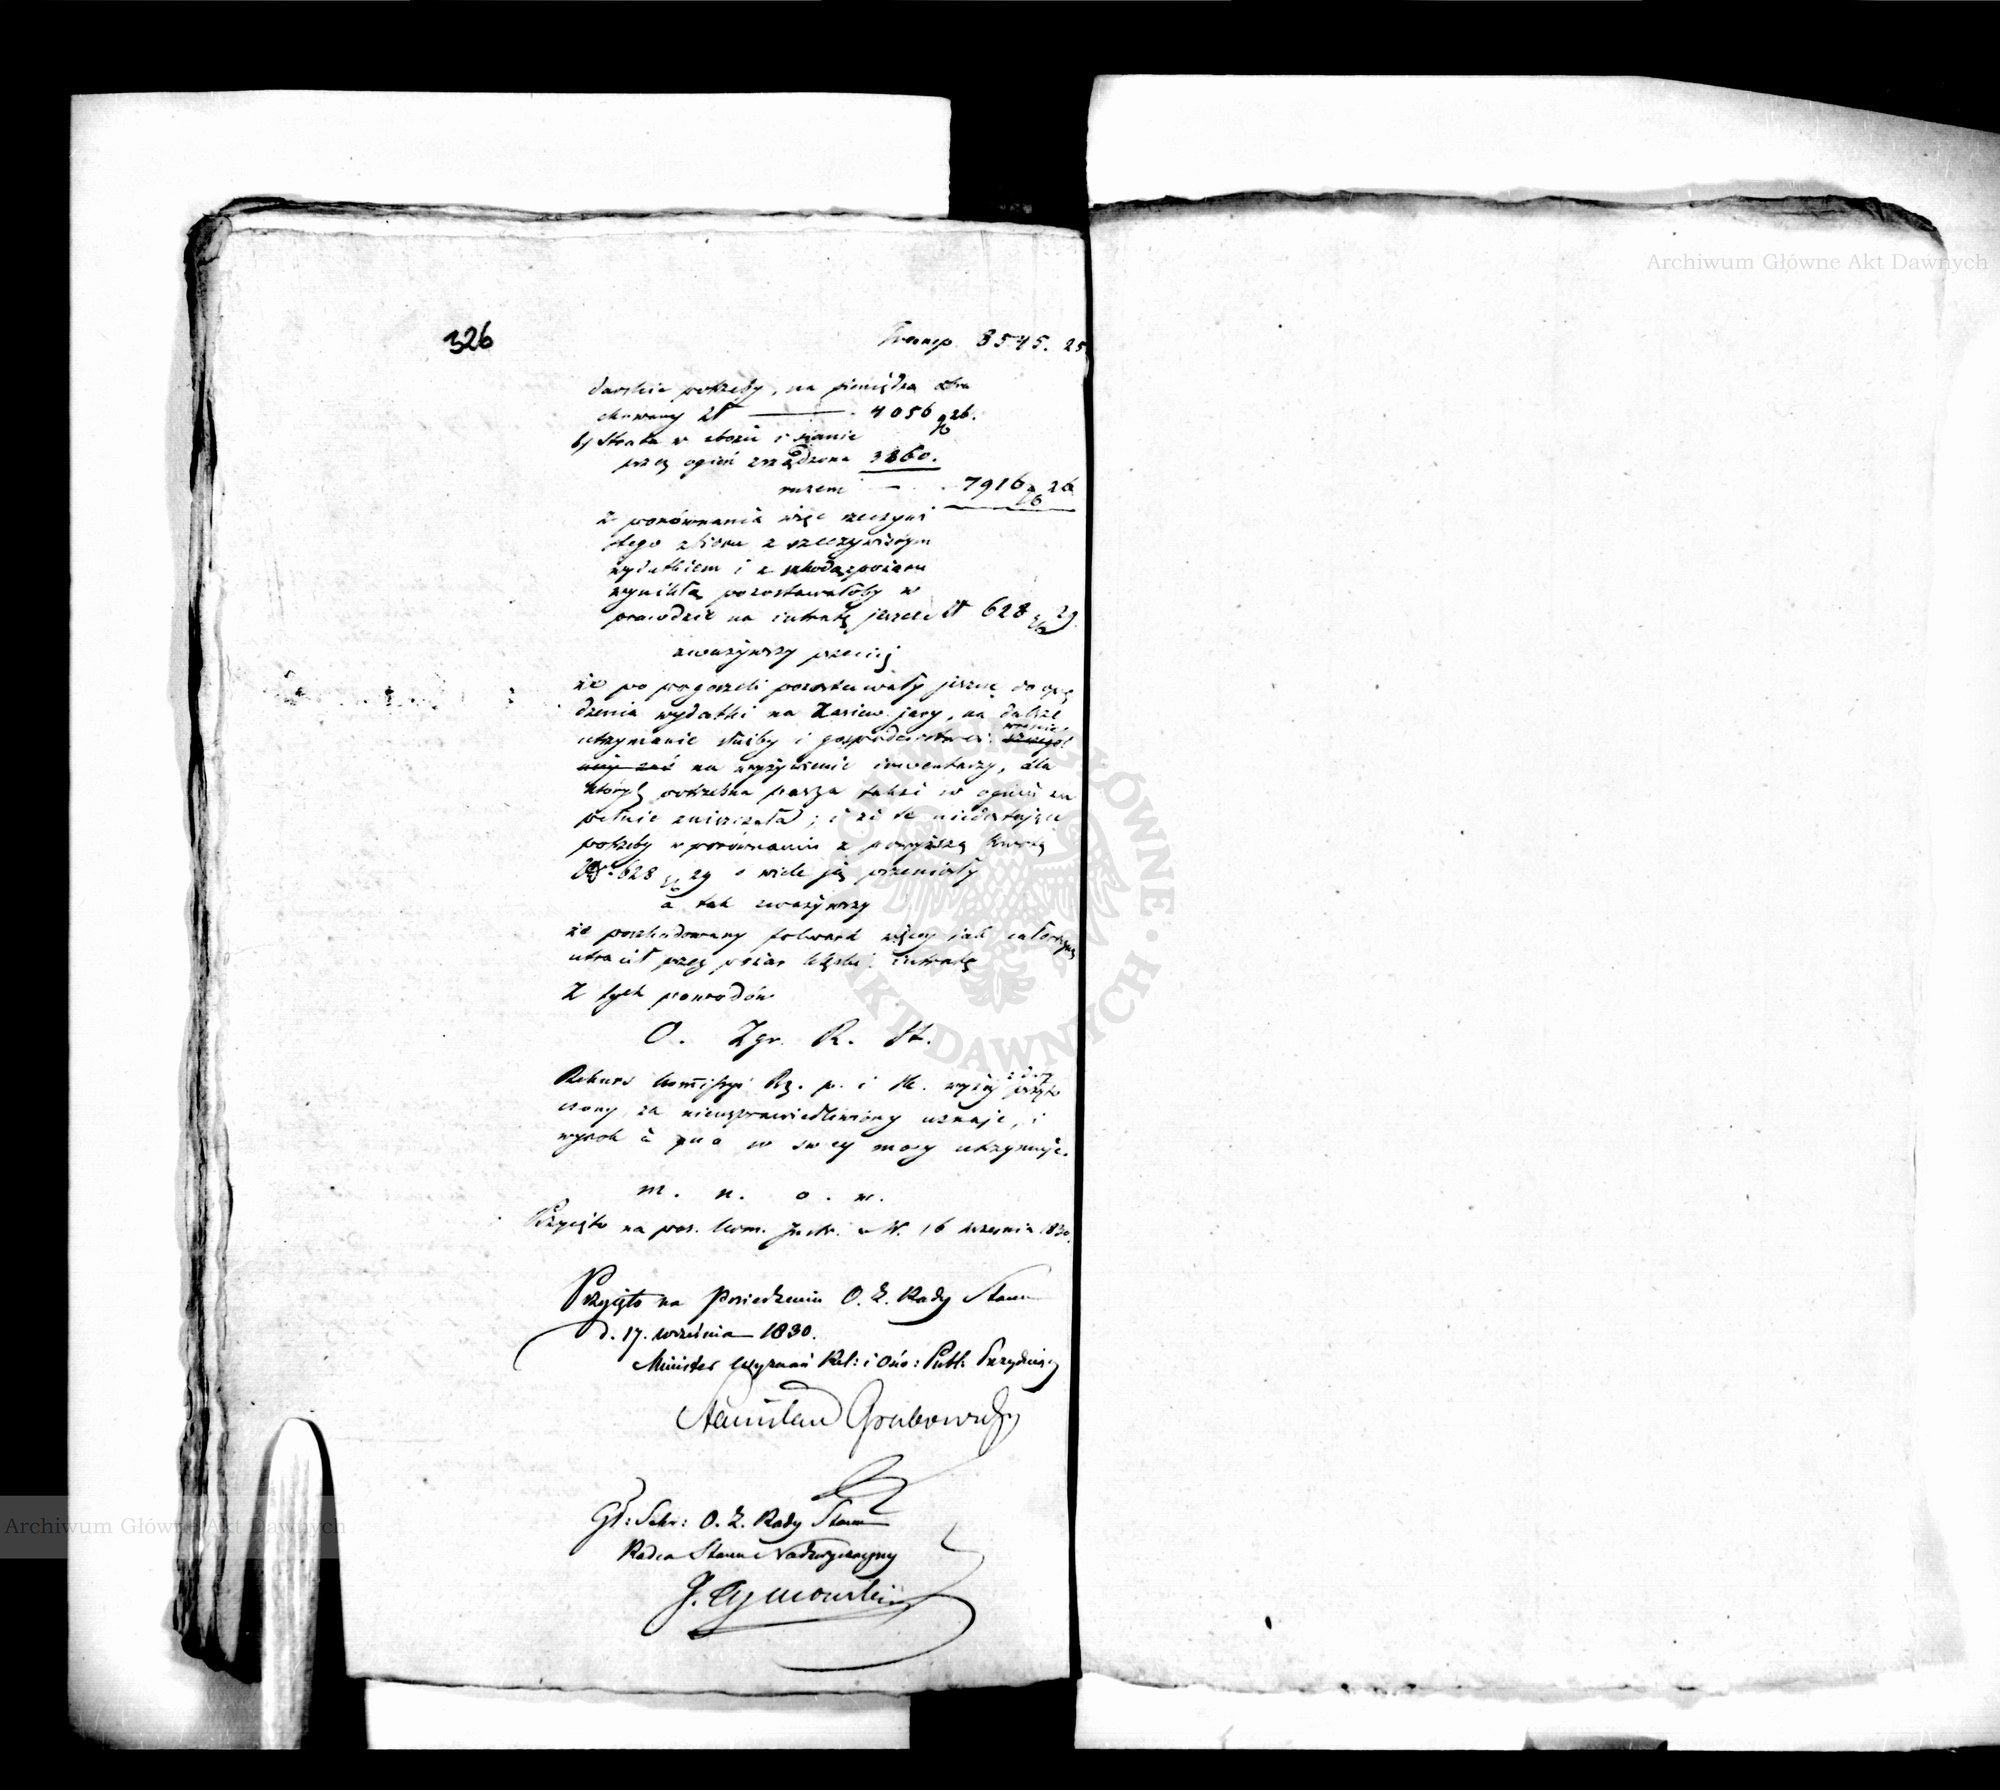 326
Transp. 8545. 25
darskie potrzeby, na pieniądze obra
chowany zł 4056 gr 26.
b) Strata w zbożu i sianie
przez ogień zrządzona 3860.
razem 7916 gr 26
Z porównania więc rzeczywi
stego zbioru z rzeczywistym
wydatkiem i z szkodą z pożaru
wynikłą pozostawałoby w
prawdzie na intratę jeszcze zł 628 gr 29.
zważywszy przeciej
że po pogorzeli pozostawały jeszcze do opę
dzenia wydatki na zasiew jary, na dalsze
utrzymanie służby i gospodarstwa
na wyżywienie inwentarzy, dla
których potrzebna pasza także w ogniu zu
pełnie zniszczała; i że te niedostające
potrzeby w porównaniu z powyższą kwotą
628 gr 29 o wiele ją przeniosły
a tak zważywszy
że poszkodowany folwark więcej jak całoroczną
utracił przez pożar intratę
Z tych powodów
O. Zgr. R. St.
Rekurs Kommissyi Rz. p. i Sk. wyżej przyto
czony za nieusprawiedliwiony uznaje, i
wyrok a quo w swey mocy utrzymuje.
m. n. o. w.
Przyjęto na pos. Kom. Instr. 16 września 1830.
Przyjęto na Posiedzeniu O. Z. Rady Stanu
d. 17. września 1830.
Minister Wyznań Rel: i Ośw: Publ: Prezydujący
Stanisław Grabowski
Gł: Sekr: O. Z. Rady Stanu
Radca Stanu Nadzwyczayny
J. Tymowski
Archiwum Główne Akt Dawnych
Archiwum Główne Akt Dawnych
ARCHIWUM GŁÓWNE AKT DAWNYCH